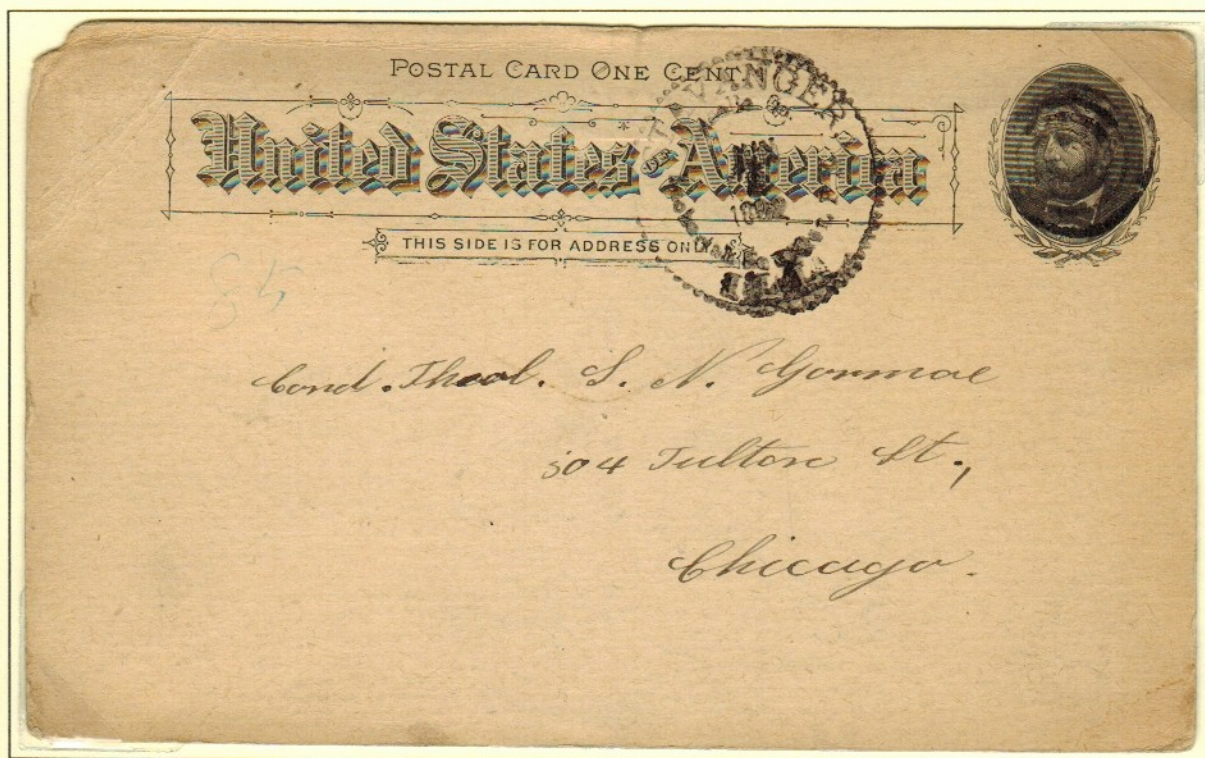 POSTAL CARD ONE CENT
United States of America
THIS SIDE IS FOR ADDRESS ONLY
STAVANGER
189
ILL
Cand. Theol. S. N. Garmoe
504 Fulton St.,
Chicago.